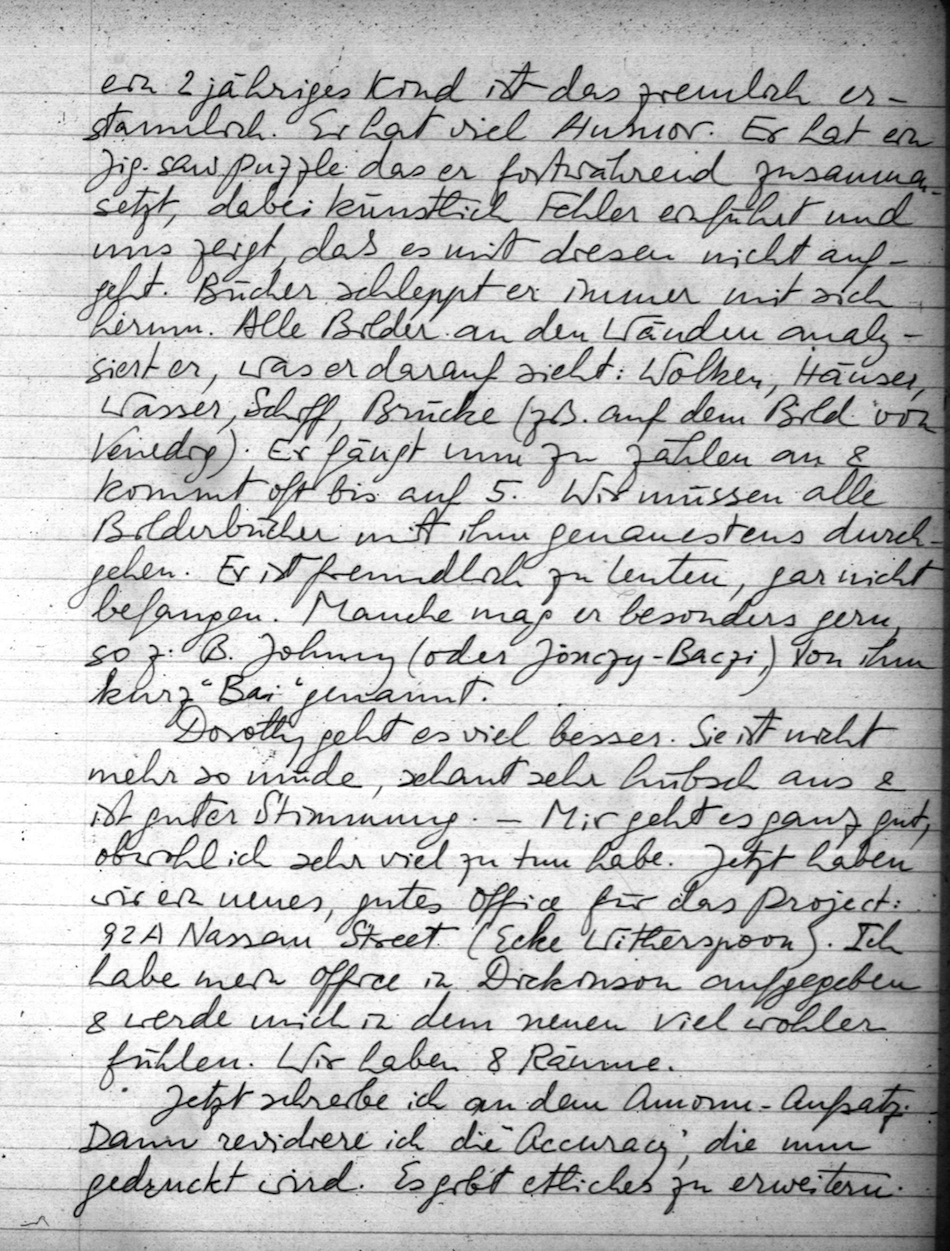 ein 2 jähriges Kind ist das ziemlich er-
staunlich. Er hat viel Humor. Er hat ein
Jig-saw puzzle das er fortwährend zusammen-
setzt, dabei künstlich Fehler einführt und
uns zeigt, daß es mit diesen nicht auf-
geht. Bücher schleppt er immer mit sich
herum. Alle Bilder an den Wänden analy-
siert er, was er darauf sieht: Wolken, Häuser,
Wasser, Schiff, Brücke (z.B. auf dem Bild von
Venedig). Er fängt nun zu zählen an &
kommt oft bis auf 5. Wir müssen alle
Bilderbücher mit ihm genauestens durch-
gehen. Er ist freundlich zu Leuten, gar nicht
befangen. Manche mag er besonders gern,
so z. B. Johnny (oder Jonczy-Baczi) von ihm
kurz "Bai" genannt.
Dorothy geht es viel besser. Sie ist nicht
mehr so müde, schaut sehr hübsch aus &
ist guter Stimmung. – Mir geht es ganz gut,
obwohl ich sehr viel zu tun habe. Jetzt haben
wir ein neues, gutes Office für das Project:
92A Nassau Street (Ecke Witherspoon). Ich
habe mein Office in Dickinson aufgegeben
& werde mich in dem neuen viel wohler
fühlen. Wir haben 8 Räume.
Jetzt schreibe ich an dem Amonn-Aufsatz.
Dann revidiere ich die 'Accuracy', die nun
gedruckt wird. Es gibt etliches zu erweitern.